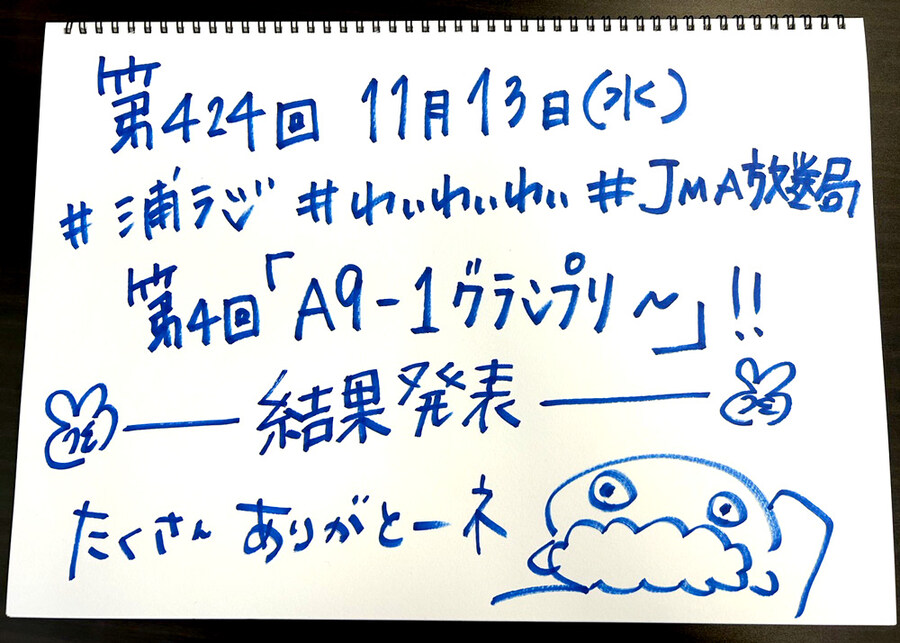 第424回 11月13日(水)
#浦ラジ #わいわいわい #JMA放送局
第4回「A9-1グランプリ〜」!!
結果発表
たくさん ありがとーネ